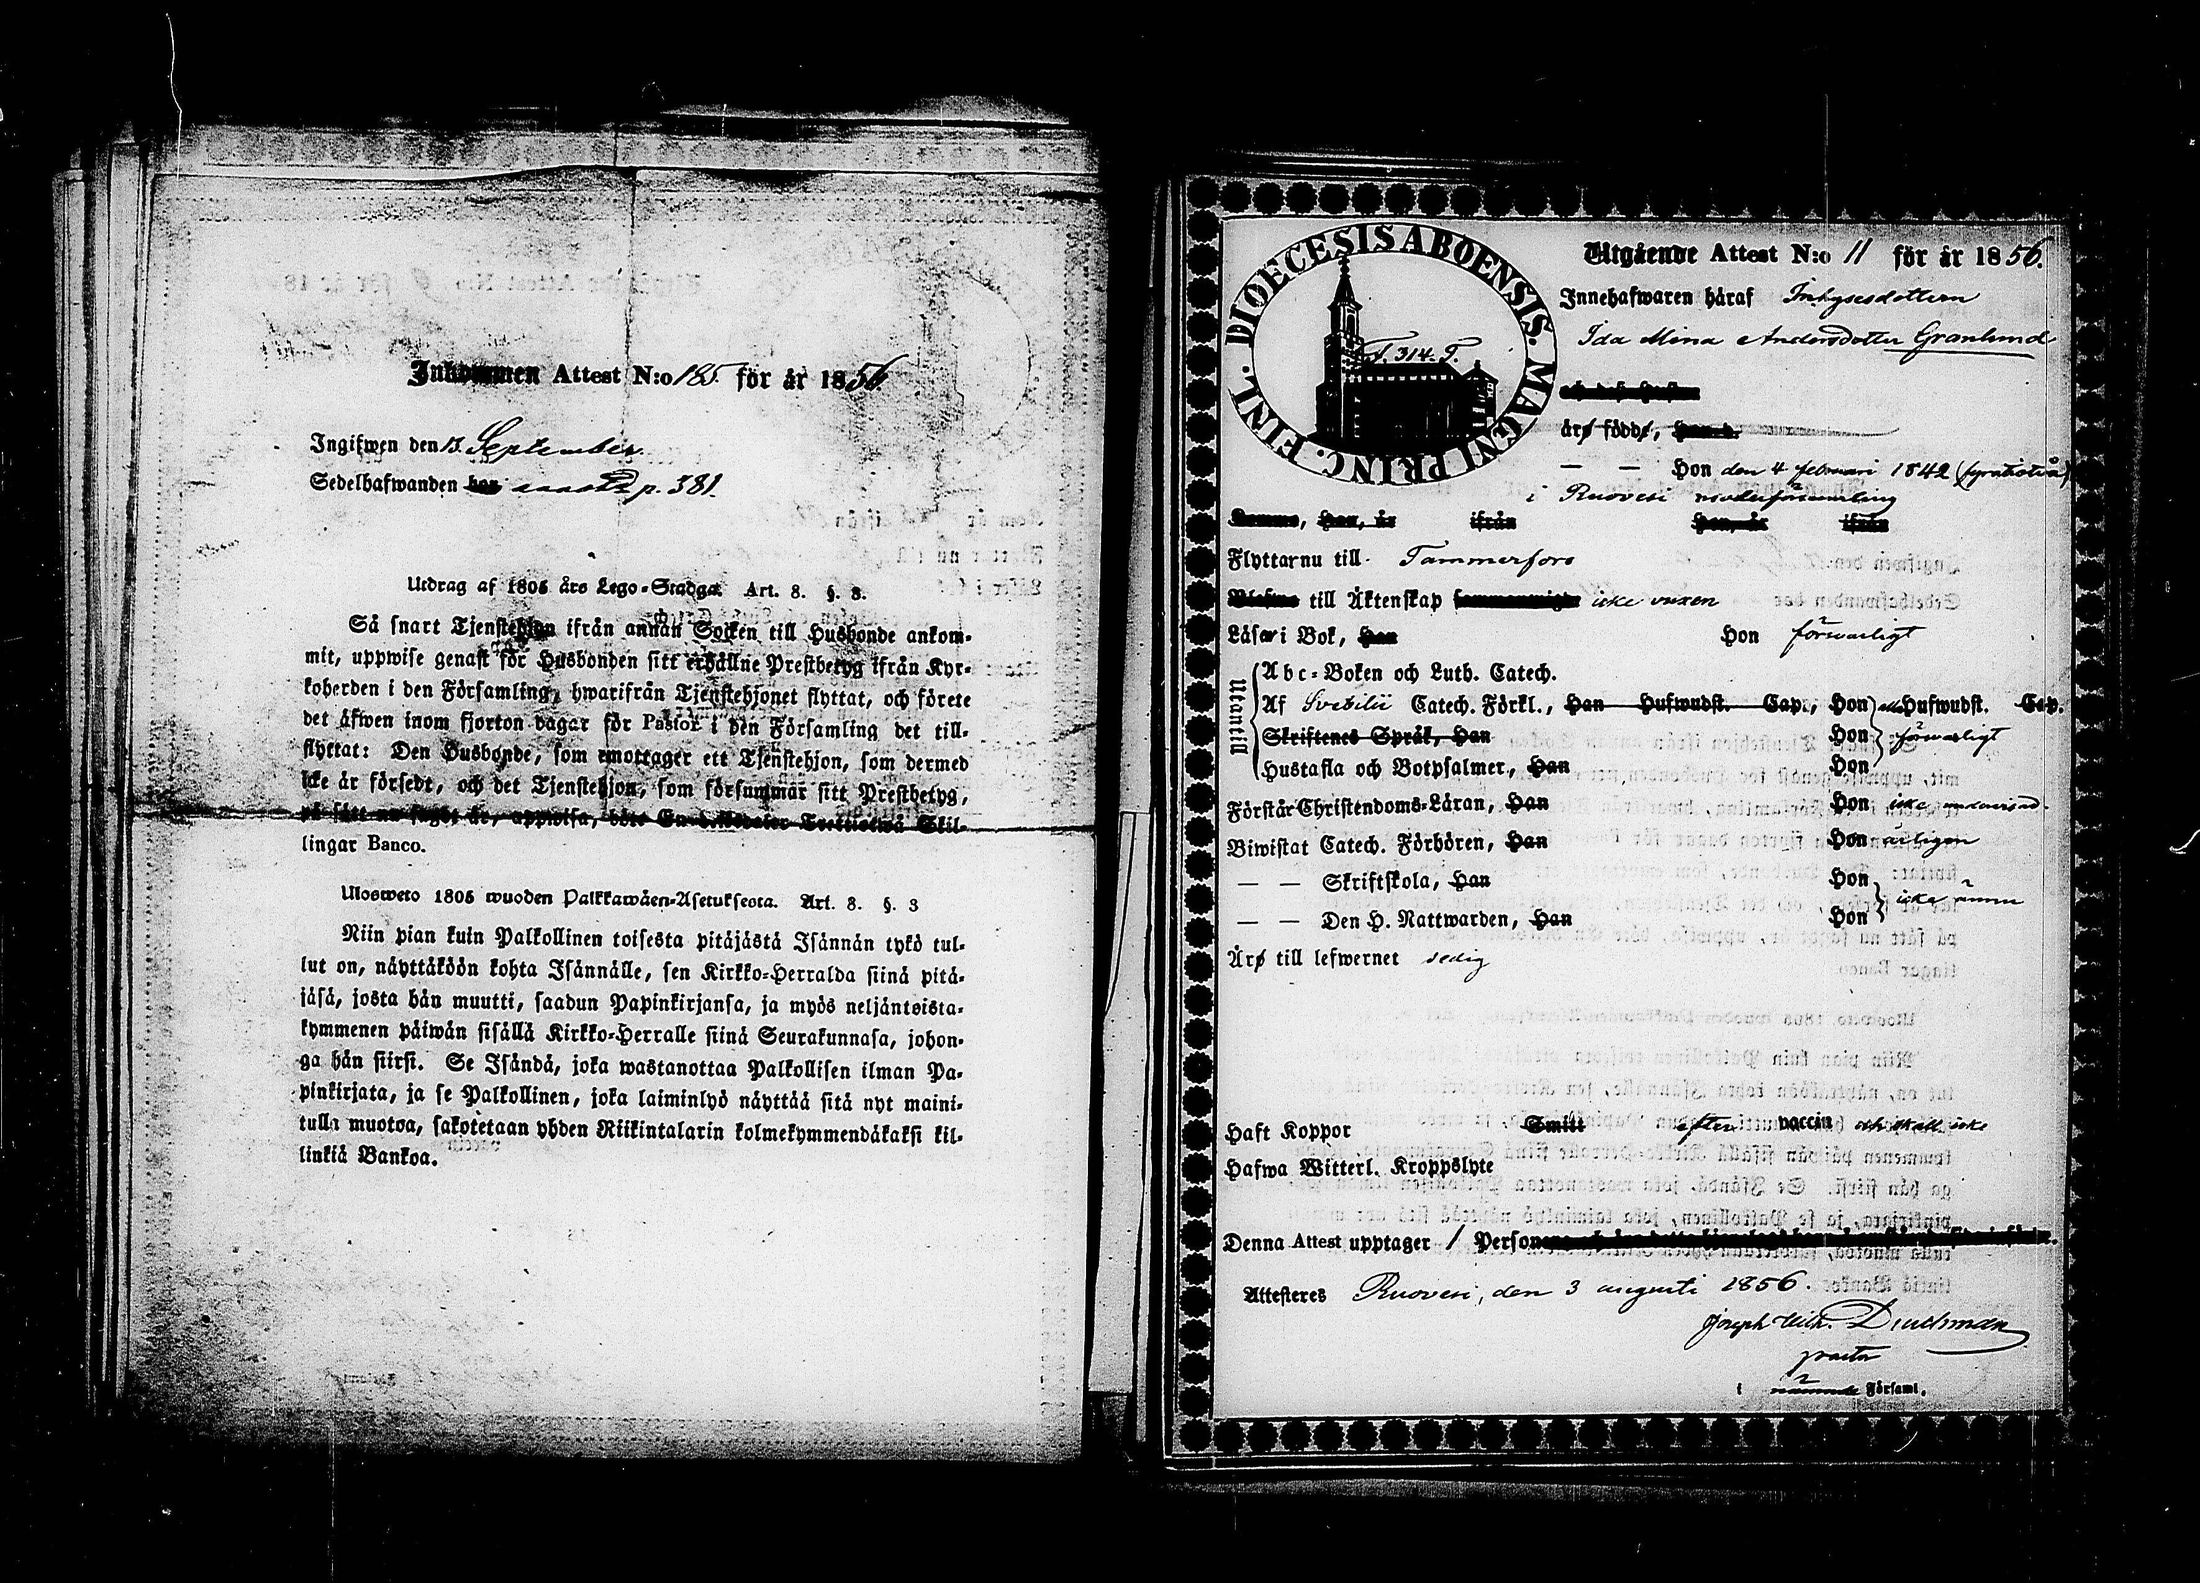 Inkommen Attest N:o 185. för år 1856
Ingifwen den 13. September.
Sedelhafwanden p. 381.
Utdrag af 1805 års Lego-Stadga. Art. 8. §. 3.
Så snart Tjenstehjon ifrån annan Socken till Husbonde ankom-
mit, uppwise genast för Husbonden sitt erhållne Prestbetyg ifrån Kyr-
koherden i den Församling, hwarifrån Tjenstehjonet flyttat, och förete
det äfwen inom fjorton dagar för Pastor i den Församling det till-
flyttat: Den Husbonde, som emottager ett Tjenstehjon, som dermed
icke är försedt, och det Tjenstehjon, som försummar sitt Prestbetyg,
på sätt nu sagdt är, uppwisa, böte En Riksdaler Trettiotwå Skil-
lingar Banco.
Ulosweto 1805 wuoden Palkkawäen-Asetuksesta. Art. 8. §. 3
Niin pian kuin Palkollinen toisesta pitäjästä Isännän tykö tul-
lut on, näyttäköön kohta Isännälle, sen Kirkko-Herralda siinä pitä-
jäsä, josta hän muutti, saadun Papinkirjansa, ja myös neljäntoista-
kymmenen päiwän sisällä Kirkko-Herralle siinä Seurakunnasa, johon-
ga hän siirsi. Se Isändä, joka wastanottaa Palkollisen ilman Pa-
pinkirjata, ja se Palkollinen, joka laiminlyö näyttää sitä nyt maini-
tulla muotoa, sakotetaan yhden Riikintalarin kolmekymmendäkaksi kil-
linkiä Bankoa.
DIOECESIS ABOENSIS. MAGNI PRINC. FINL.
F. 314. T.
Utgående Attest N:o 11 för år 1856.
Innehafwaren häraf Inhysesdottern
Ida Mina Andersdotter Granlund
är född,
— — Hon den 4 februari 1842 (fyratiotvå)
i Ruovesi moderförsamling
Komne, Han, år ifrån Hon, år ifrån
Flyttar nu till Tammerfors
till Äktenskap icke vuxen
Läser i Bok, Han Hon försvarligt
Utantill
Abc-Boken och Luth. Catech.
Af Svebilii Catech. Förkl., Han Hufwudst. Cap., Hon Hufwudst. Cap.
Skriftenes Språk, Han Hon försvarligt
Hustafla och Botpsalmer, Han Hon
Förstår Christendoms-Läran, Han Hon icke undervisad.
Biwistat Catech. Förhören, Han Hon årligen
— — Skriftskola, Han Hon icke ännu
— — Den H. Nattwarden, Han Hon
Är till lefwernet sedig
Haft Koppor Smitt efter vaccin och skall icke
Hafwa Witterl. Kroppslyte
Denna Attest upptager 1 Person
Attesteras Ruovesi, den 3 augusti 1856.
Joseph Wilh. Durchman
pastor
i nämnde Församl.